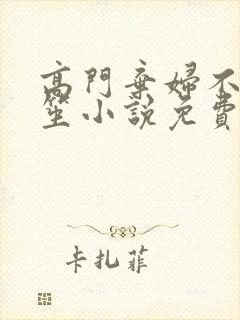 高門棄婦不
笙小說免費
卡扎菲